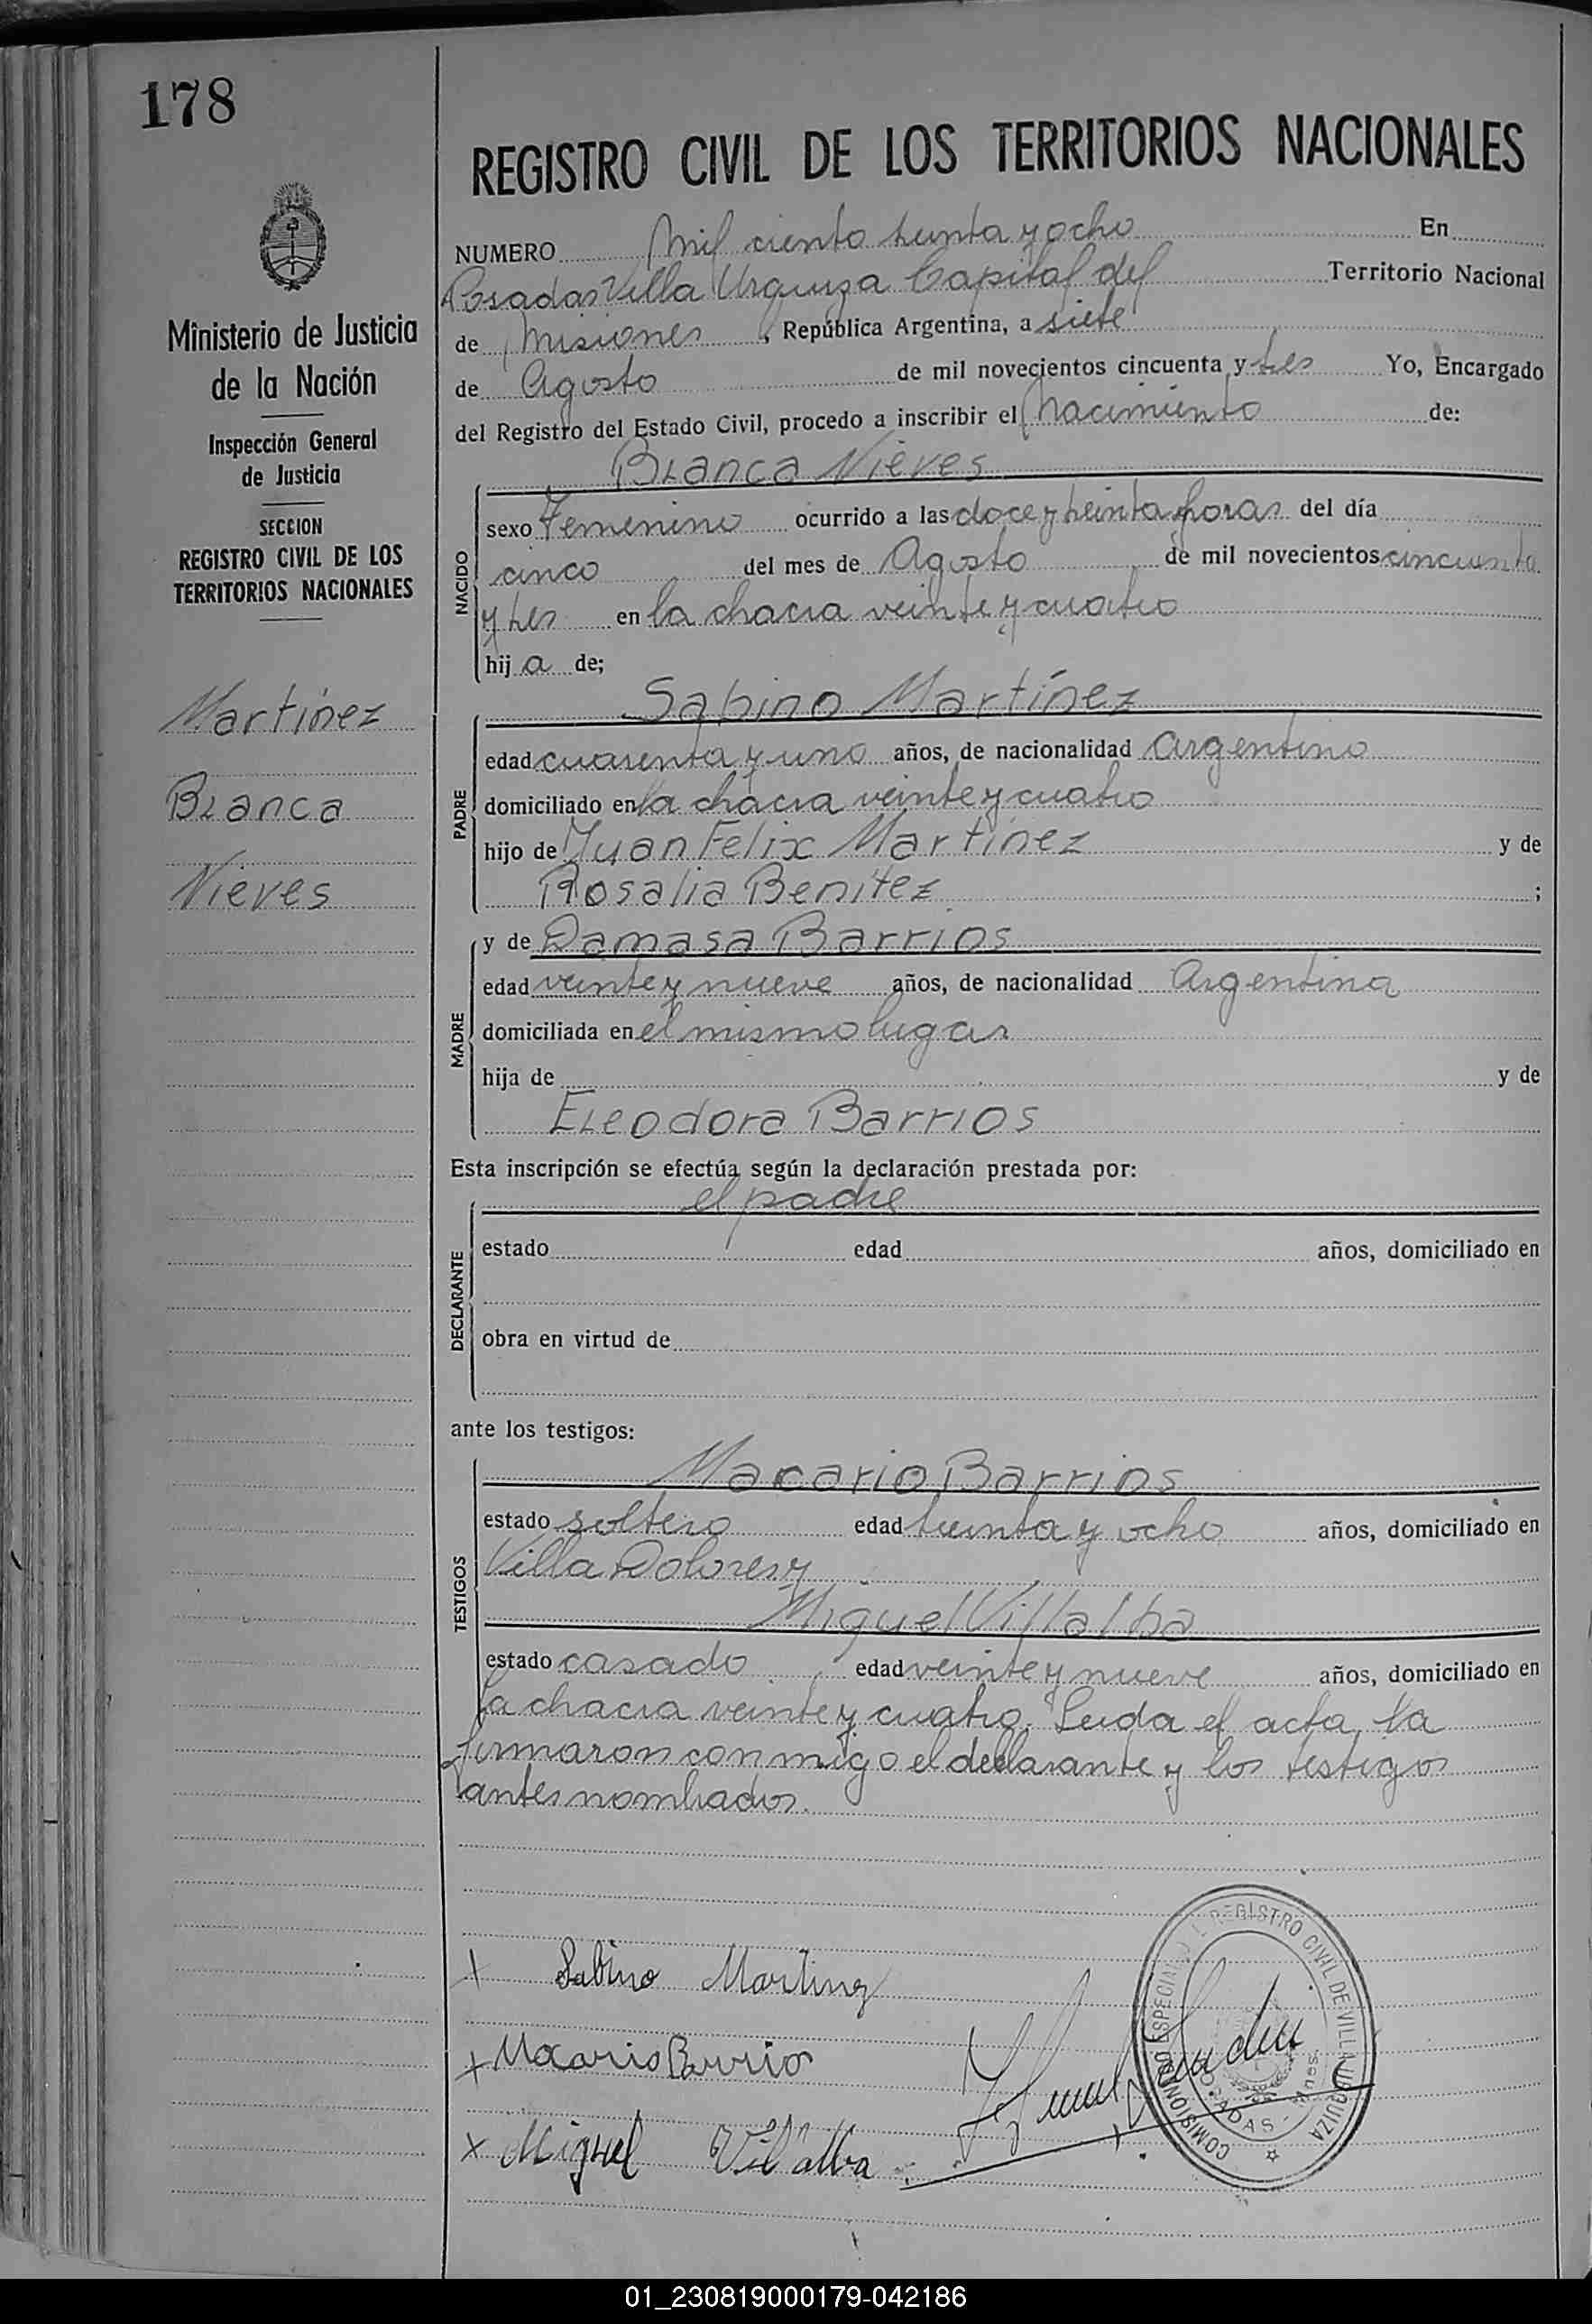 178
Ministerio de Justicia
de la Nación
Inspección General
de Justicia
SECCION
REGISTRO CIVIL DE LOS
TERRITORIOS NACIONALES
Martínez
Blanca
Nieves
REGISTRO CIVIL DE LOS TERRITORIOS NACIONALES
NUMERO Mil ciento treinta y ocho En
Posadas Villa Urquiza Capital del Territorio Nacional
de Misiones, República Argentina, a siete
de Agosto de mil novecientos cincuenta y tres Yo, Encargado
del Registro del Estado Civil, procedo a inscribir el Nacimiento de:
Blanca Nieves
NACIDO
sexo Femenino ocurrido a las doce y treinta horas del día
cinco del mes de Agosto de mil novecientos cincuenta
y tres en la chacra veinte y cuatro
hija de;
Sabino Martínez
PADRE
edad cuarenta y uno años, de nacionalidad Argentino
domiciliado en la chacra veinte y cuatro
hijo de Juan Felix Martínez y de
Rosalia Benitez ;
MADRE
y de Damasa Barrios
edad veinte y nueve años, de nacionalidad Argentina
domiciliada en el mismo lugar
hija de y de
Eleodora Barrios
Esta inscripción se efectúa según la declaración prestada por:
el padre
DECLARANTE
estado edad años, domiciliado en
obra en virtud de
ante los testigos:
Macario Barrios
TESTIGOS
estado soltero edad treinta y ocho años, domiciliado en
Villa Dolores y
Miguel Villalba
estado casado edad veinte y nueve años, domiciliado en
la chacra veinte y cuatro. Leida el acta, la
firmaron conmigo el declarante y los testigos
antes nombrados.
x Sabino Martinez
x Macario Barrio
x Miguel Villalba
COMISIONADO ESPECIAL REGISTRO CIVIL DE VILLA URQUIZA
POSADAS - Mnes.
01_230819000179-042186